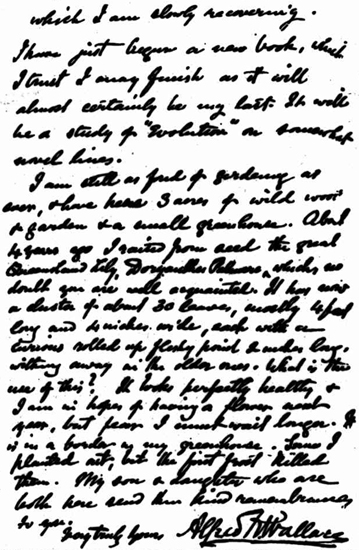 which I am slowly recovering.
I have just begun a new book, which
I trust I may finish as it will
almost certainly be my last. It will
be a study of "Evolution" on somewhat
novel lines.
I am still as fond of gardening as
ever, & have here 3 acres of wild wood
& garden & a small greenhouse. About
4 years ago I raised from seed the great
Queensland Lily, Doryanthes Palmeri, which no
doubt you are well acquainted. It has now
a cluster of about 30 leaves, mostly 4 feet
long and 4 inches wide, each with a
curious rolled up, fleshy point 2 inches long.
withering away in the older ones. What is the
use of this? It looks perfectly healthy &
I am in hopes of having a flower next
year, but fear I must wait longer. It
is in a border in my greenhouse. Some I
planted out, but the first frost killed
them. My son & daughter who are
both here send their kind remembrances
to you.
Very truly yours Alfred R. Wallace